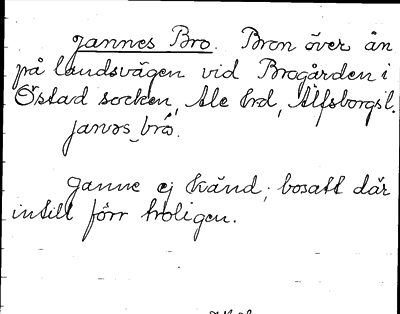 Jannes Bro. Bron över ån
på landsvägen vid Brogården i
Östad socken, Ale hrd, Älfsborgsl.
janəs_bró.
Janne ej känd; bosatt där
intill förr troligen.